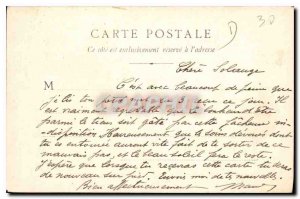 CARTE POSTALE
Ce côté est exclusivement réservé à l'adresse
D
30
Chère Solange
M C'est avec beaucoup de peine que
j'ai lu ton petit reçu ce jour. Il
est vraiment
parmi le tien soit gâté par cette fâcheuse in-
disposition Heureusement que le soins dévoués dont
tu es entourée auront vite fait de te sortir de ce
mauvais pas, et le beau soleil fera le reste.
J'espère que lorsque tu recevras cette carte tu seras
de nouveau sur pied. Envoie moi de tes nouvelles.
Bien affectueusement